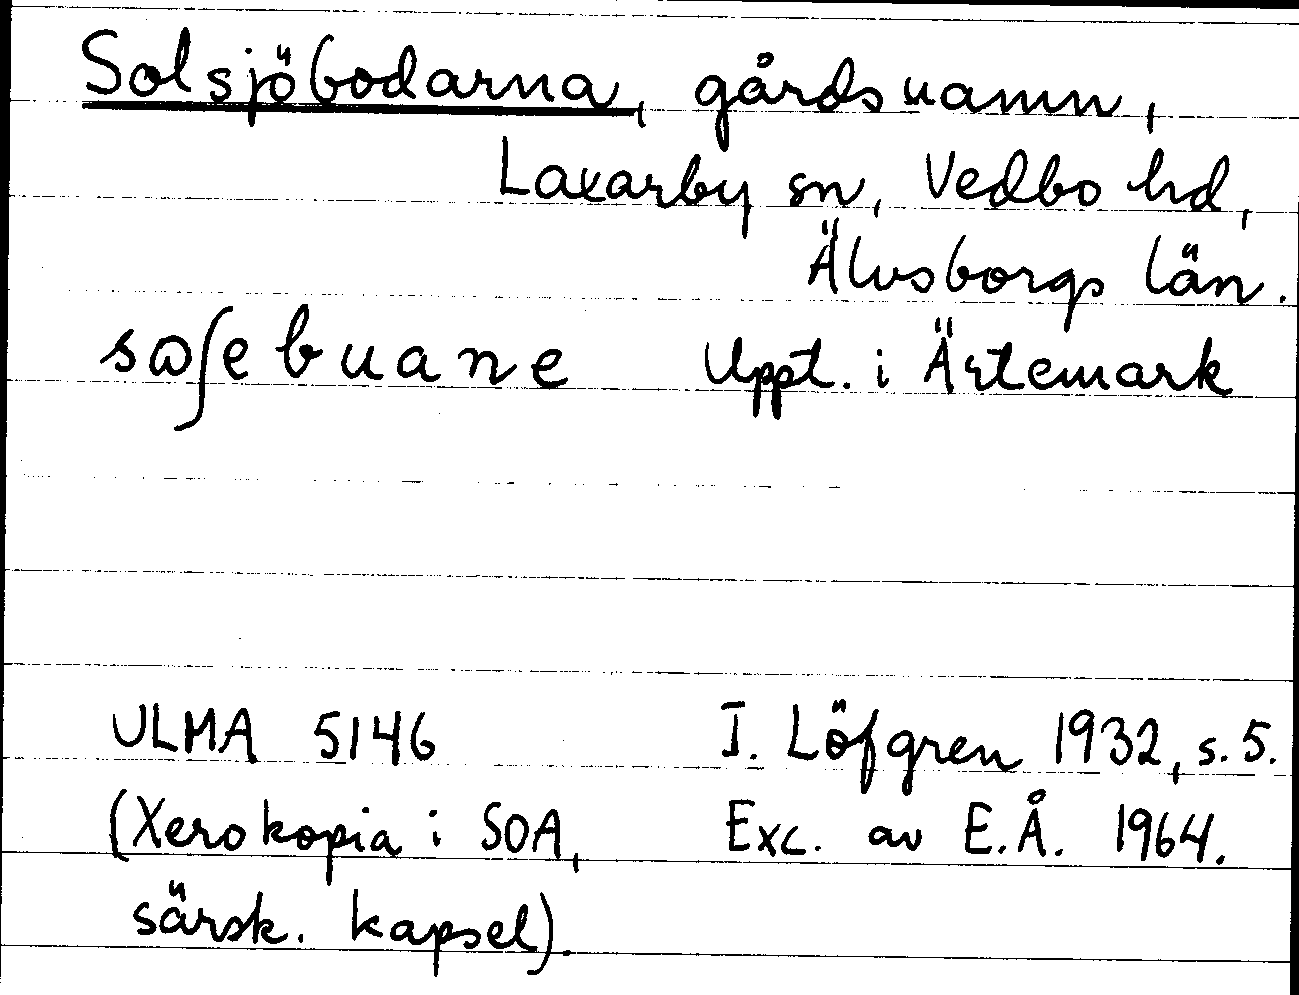 Solsjöbodarna, gårdsnamn,
Laxarby sn, Vedbo hd,
Älvsborgs län.
sɷʃebuane Uppt. i Ärtemark
ULMA 5146 I. Löfgren 1932, s. 5.
(Xerokopia i SOA, Exc. av E.Å. 1964.
särsk. kapsel).